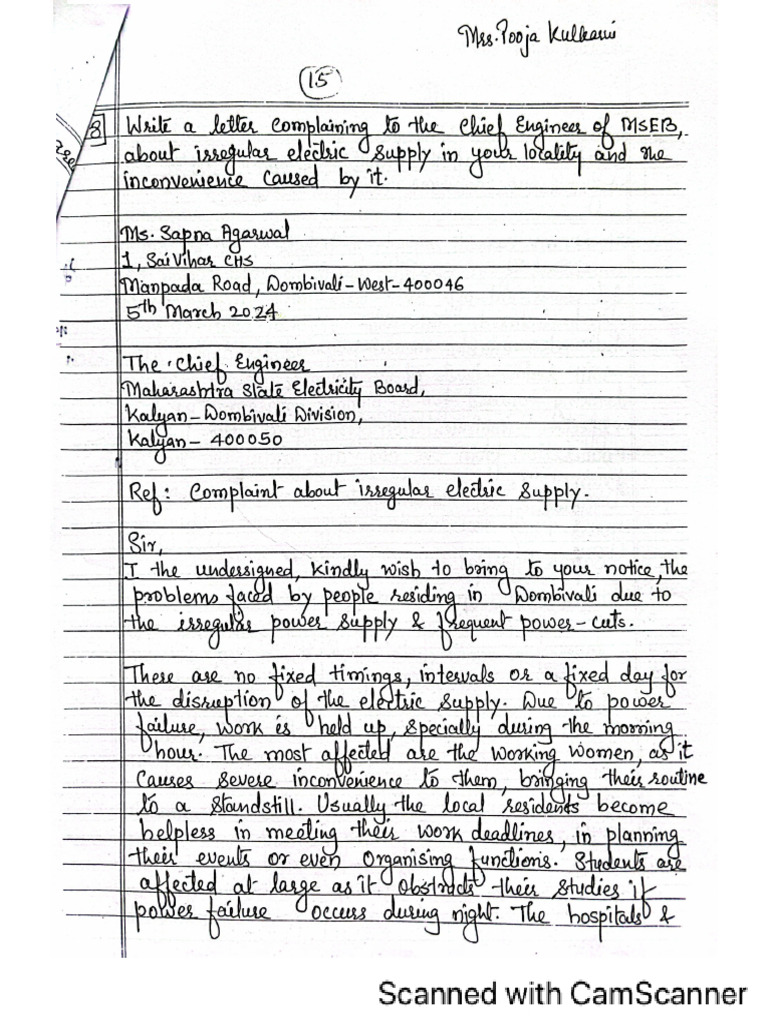 Mrs. Pooja Kulkarni
15
8] Write a letter complaining to the Chief Engineer of MSEB,
about irregular electric supply in your locality and the
inconvenience caused by it.
Ms. Sapna Agarwal
1, Sai Vihar CHS
Manpada Road, Dombivali-West-400046
5th March 2024
The Chief Engineer
Maharashtra State Electricity Board,
Kalyan-Dombivali Division,
Kalyan- 400050
Ref: Complaint about irregular electric supply.
Sir,
I the undersigned, kindly wish to bring to your notice, the
problems faced by people residing in Dombivali due to
the irregular power supply & frequent power-cuts.
There are no fixed timings, intervals or a fixed day for
the disruption of the electric supply. Due to power
failure, work is held up, specially during the morning
hour. The most affected are the working women, as it
causes severe inconvenience to them, bringing their routine
to a standstill. Usually the local residents become
helpless in meeting their work deadlines, in planning
their events or even organising functions. Students are
affected at large as it obstructs their studies if
power failure occurs during night. The hospitals &
Scanned with CamScanner